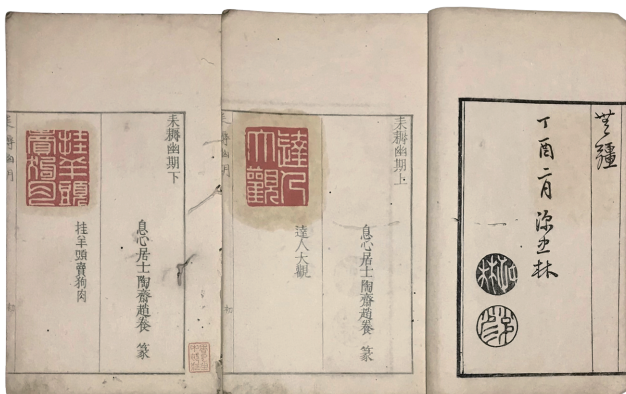 疆
丁酉二月
耒耨幽期上
息心居士陶齋趙養 篆
達人大觀
達人大觀
耒耨幽期下
息心居士陶齋趙養 篆
挂羊頭賣狗肉
挂羊頭賣狗肉